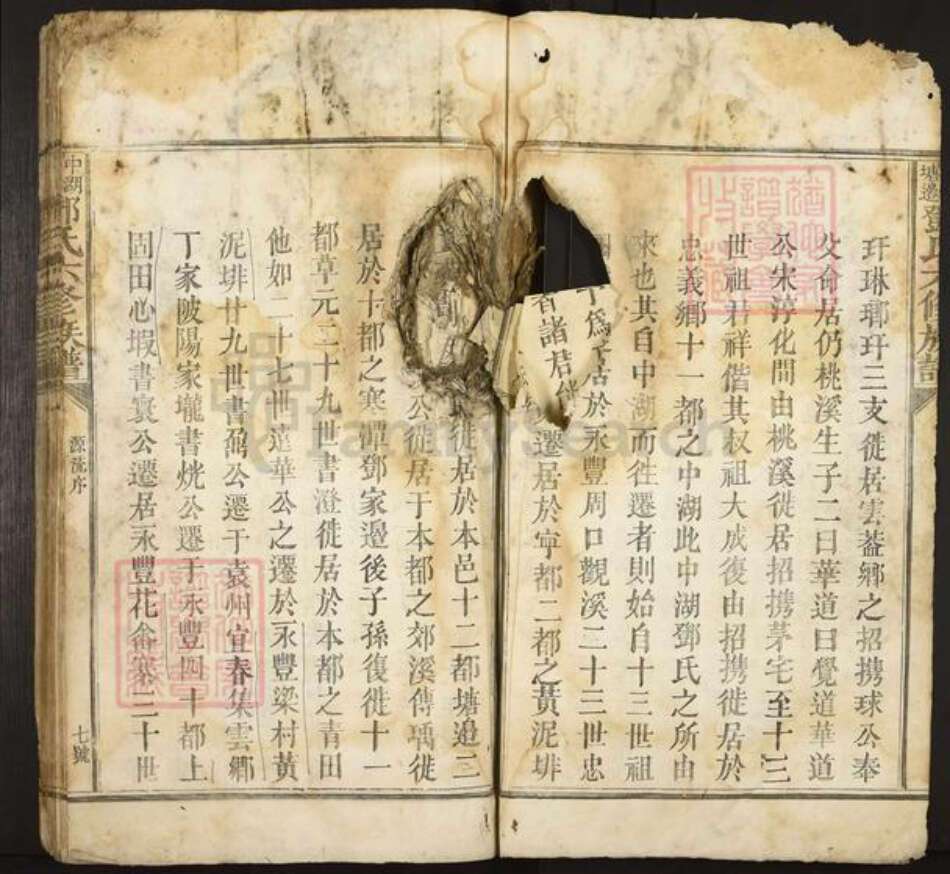 塘邊鄧氏六修族譜
玗琳瑯玗三支徙居雲葢鄉之招携球公奉
父命居仍桃溪生子二曰華道曰覺道華道
公宋淳化間由桃溪徙居招携茅宅至十三
世祖君祥偕其叔祖大成復由招携徙居於
忠義鄉十一都之中湖此中湖鄧氏之所由
來也其自中湖而徃遷者則始自十三世祖
於永豐周口觀溪二十三世忠
遷居於寧都二都之黃泥排
徙居於本邑十二都塘邉三
公徙居于本都之郊溪傳瑀徙
居於十都之寒潭鄧家邉後子孫復徙十一
都草元二十九世書澄徙居於本都之青田
他如二十七世達華公之遷於永豐梁村黃
泥排廿九世書鵠公遷于袁州宜春集雲鄉
丁家陂陽家壠書恍公遷于永豐四十都上
固田心塅書寰公遷居永豐花畲寨三十世
中湖鄧氏六修族譜
源流序
七號
FamilySearch